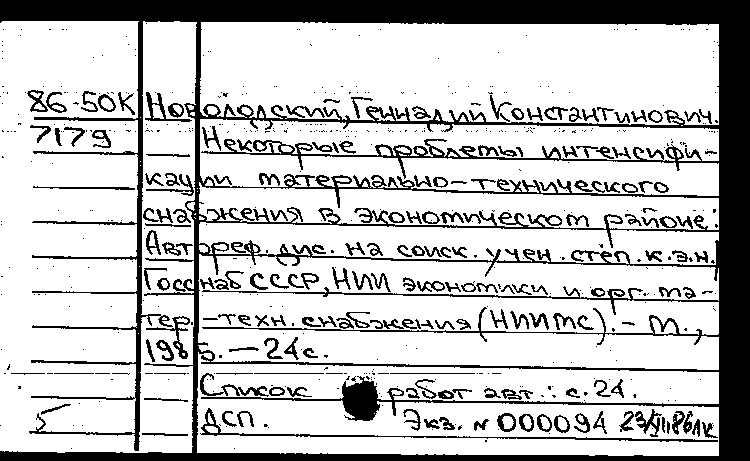 86-50К Новолодский, Геннадий Константинович.
7179 Некоторые проблемы интенсифи-
кации материально-технического
снабжения в экономическом районе:
Автореф. дис. на соиск. учен. степ. к.э.н.
Госснаб СССР, НИИ экономики и орг. ма-
тер.-техн. снабжения (НИИМС). - М.,
1985. — 24 с.
Список работ авт.: с. 24.
5 ДСП. Экз. N 000094